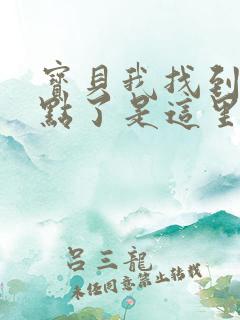 寶貝我找到
點了是這里
呂三龍
未经同意禁止转载